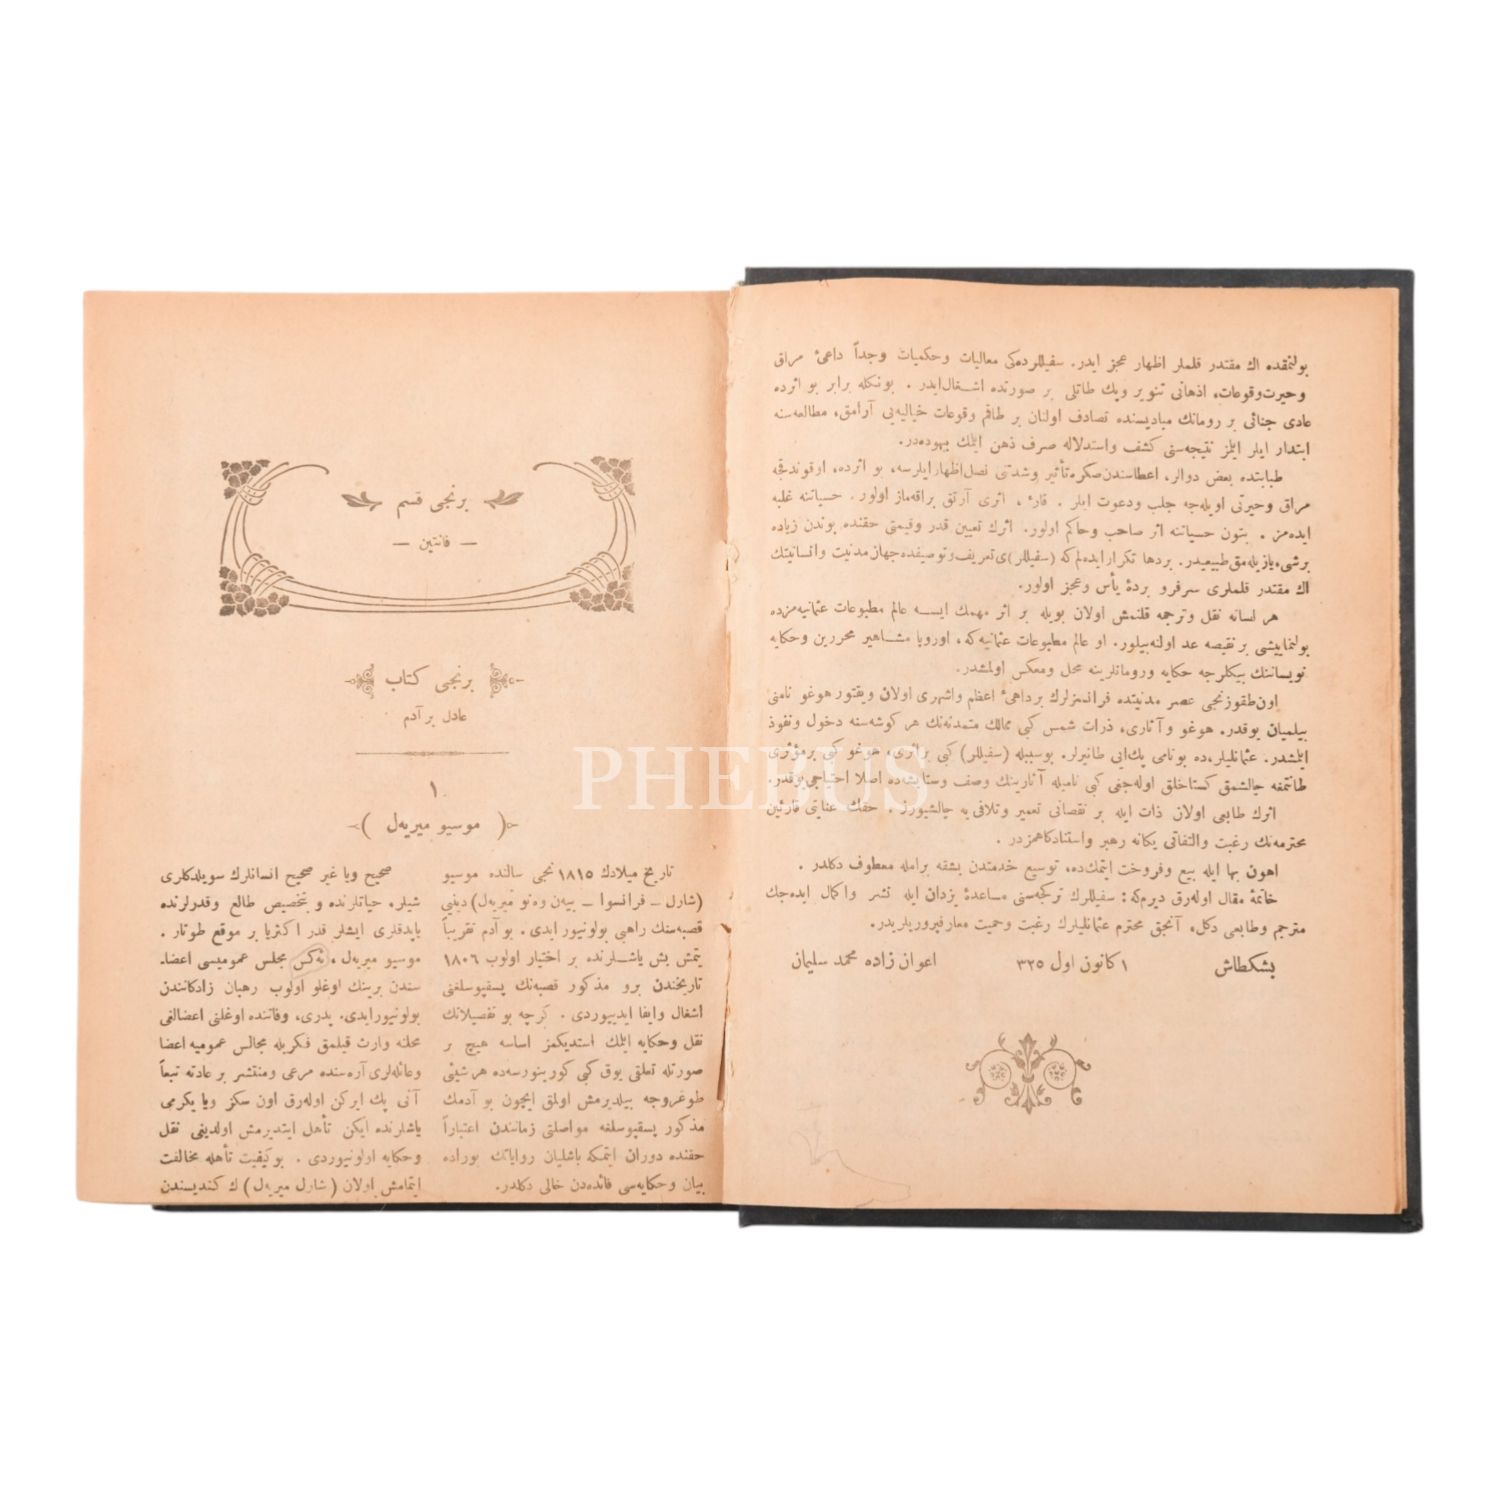 بولنمقده اك مقتدر قلملر اظهار عجز ايدر. سفيللرده‌كى معاليات وحكميات وجداً داعئ مراق
وحيرت وقوعات، اذهانى تنوير وپك طاتلى بر صورتده اشغال ايدر . بونكله برابر بو اثرده
عادى جنائى بر رومانك مباديسنده تصادف اولنان بر طاقم وقوعات خياليه‌يى آرامق، مطالعه‌سنه
ابتدار ايلر ايلمز نتيجه‌سنى كشف واستدلاله صرف ذهن ايتمك بيهوده‌در.
طبابتده بعض دوالر، اعطاسندن صكره تأثير وشدتنى نصل اظهار ايلرسه، بو اثرده، اوقوندقجه
مراق وحيرتى اويله‌جه جلب ودعوت ايلر . قارئ ، اثرى آرتق براقه‌ماز اولور . حسياتنه غلبه
ايده‌مز . بتون حسياتنه اثر صاحب وحاكم اولور. اثرك تعيين قدر وقيمتى حقنده بوندن زياده
برشى، يازيله‌مق طبيعيدر. بردها تكرار ايده‌لم كه (سفيللر)ى تعريف وتوصيفده جهان مدنيت وانسانيتك
اك مقتدر قلملرى سرفرو بردۀ يأس وعجز اولور.
هر لسانه نقل وترجمه قلنمش اولان بويله بر اثر مهمك ايسه عالم مطبوعات عثمانيه‌مزده
بولنماييشى بر نقيصه عد اولنه‌بيلور. او عالم مطبوعات عثمانيه‌كه، اوروپا مشاهير محررين وحكايه
نويساننك بيكلرجه حكايه ورومانلرينه محل ومعكس اولمشدر.
اون طقوزنجى عصر مدنيتده فرانسزلرك برداهئ اعظم واشهرى اولان ويقتور هوغو نامنى
بيلميان يوقدر. هوغو وآثارى، ذرات شمس كبى ممالك متمدنه‌نك هر كوشه‌سنه دخول ونفوذ
ايتمشدر. عثمانليلر،ده بونامى پك‌اىى طانيرلر. بوسببله (سفيللر) كبى براثرى، هوغو كبى برمؤثرى
طانتمغه چالشمق كستاخلق اوله‌جغى كبى ناميله آثارينك وصف وستايشه‌ده اصلا احتياجى يوقدر.
اثرك طابعى اولان ذات ايله بر نقصانى تعمير وتلافى‌يه چاليشيورز . حقك عنايتى قارئين
محترمه‌نك رغبت والتفاتى يكانه رهبر واستنادكاهمزدر .
اهون بها ايله بيع وفروخت ايتمك‌ده، توسيع خدمتدن بشقه برامله معطوف دكلدر .
خاتمۀ مقال اوله‌رق ديرم‌كه: سفيللرك تركجه‌سنى مساعدۀ يزدان ايله نشر واكمال ايده‌جك
مترجم وطابعى دكل، آنجق محترم عثمانليلرك رغبت وحميت معارفپرورريلريدر.
بشكطاش ١ كانون اول ٣٢٥ اعوان زاده محمد سليمان
برنجى قسم
— فانتين —
برنجى كتاب
عادل بر آدم
١
( موسيو ميريه‌ل )
تاريخ ميلادك ١٨١٥ نجى سالنده موسيو
(شارل ـ فرانسوا ـ بيه‌ن وه‌نو ميريه‌ل) دينى
قصبه‌سنك راهبى بولونيور ايدى. بو آدم تقريباً
يتمش بش ياشلرنده بر اختيار اولوب ١٨٠٦
تاريخندن برو مذكور قصبه‌نك پسقپوسلغنى
اشغال وايفا ايدييوردى . كرچه بو تفصيلاتك
نقل وحكايه ايتمك استديكمز اساسه هيچ بر
صورتله تعلقى يوق كبى كورينورسه‌ده هر شيئى
طوغروجه بيلديرمش اولمق ايچون بو آدمك
مذكور پسقپوسلغه مواصلتى زماننندن اعتباراً
حقنده دوران ايتمكه باشليان رواياتك بوراده
بيان وحكايه‌سى فائده‌دن خالى دكلدر.
صحيح ويا غير صحيح انسانلرك سويلدكلرى
شيلر، حياتلرنده وبتخصيص طالع وقدرلرنده
ياپدقلرى ايشلر قدر اكثريا بر موقع طوتار .
موسيو ميريه‌ل . نه‌كس مجلس عموميسى اعضا-
سندن برينك اوغلو اولوب رهبان زادكانندن
بولونيور ايدى. پدرى، وفاتنده اوغلنى اعضالغى
محلنه وارث قيلمق فكريله مجالس عموميه اعضا
وعائله‌لرى آره‌سنده مرعى ومنتشر بر عادته تبعاً
آنى پك ايركن اوله‌رق اون سكز ويا يكرمى
ياشلرنده ايكن تأهل ايتديرمش اولديغى نقل
وحكايه اولونيوردى . بو كيفيت تأهله مخالفت
ايتمامش اولان (شارل ميريه‌ل) ك كنديسندن
PHEBUS